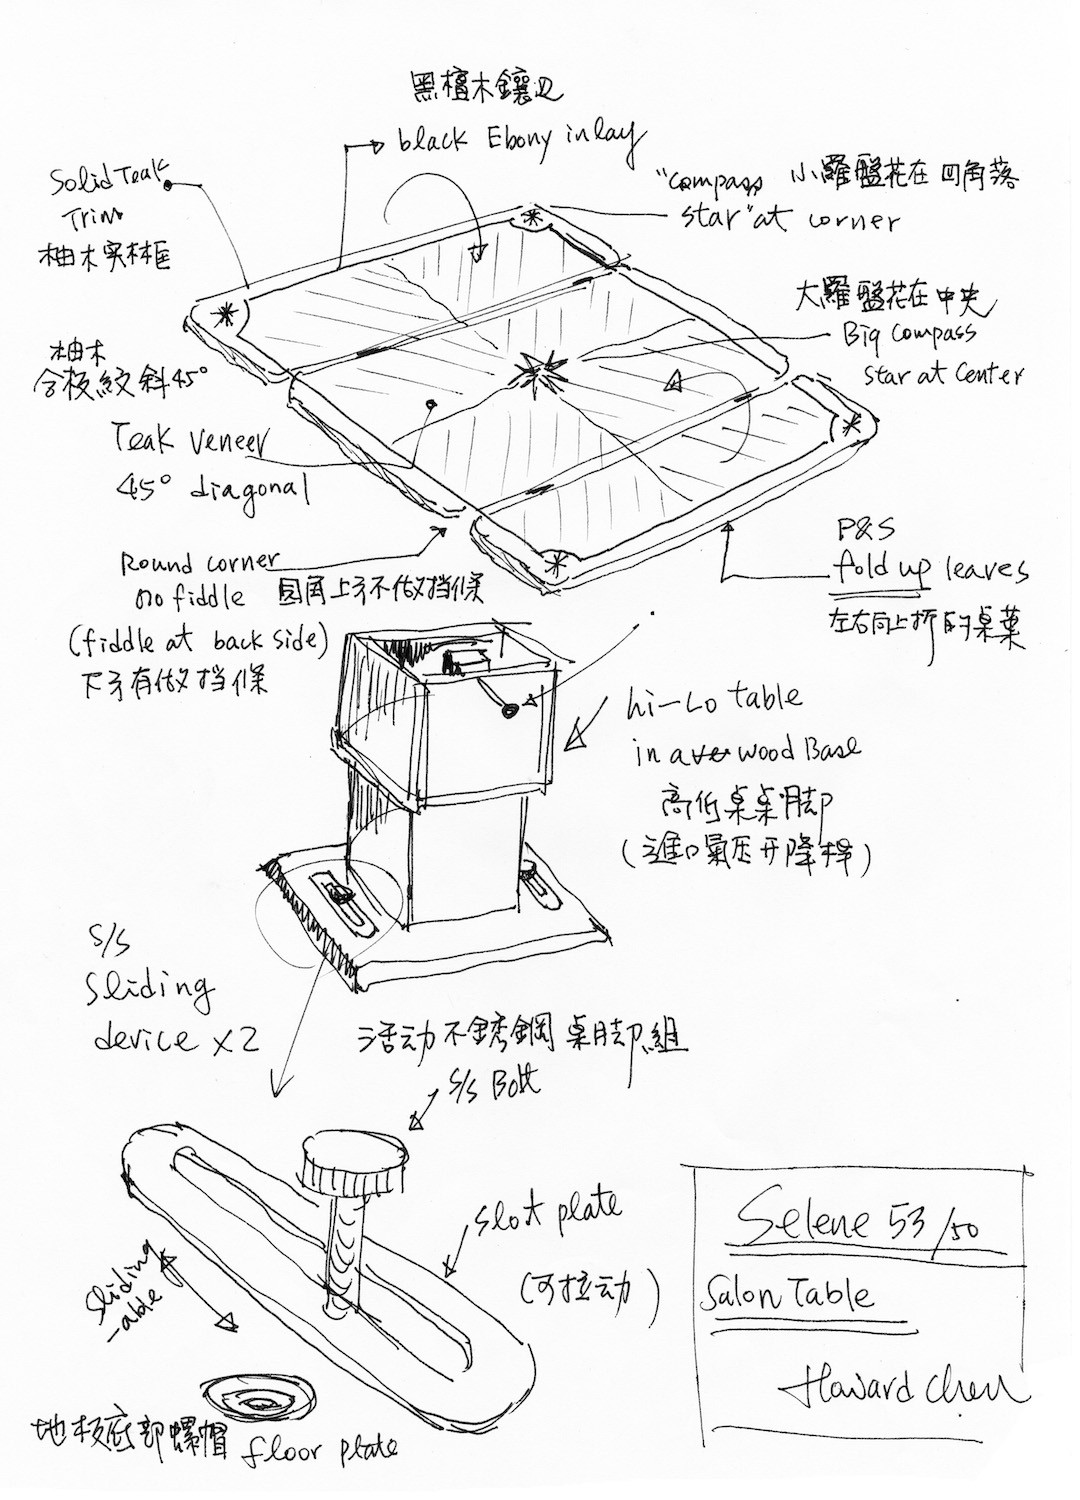 黑檀木鑲边
black Ebony inlay
Solid Teak
Trim
柚木实木框
"compass 小羅盤花在四角落
star" at corner
大羅盤花在中央
Big compass
star at center
柚木
合板紋斜45°
Teak veneer
45° diagonal
Round corner
no fiddle 圓角上不做挡條
(fiddle at back side)
下有做挡條
P&S
fold up leaves
左右向上折的桌葉
hi-Lo table
in a wood Base
高低桌桌脚
(進口氣压升降桿)
S/S
Sliding
device x2
活动不銹鋼桌脚組
S/S Bolt
slot plate
(可拉动)
Sliding
-able
地板底部螺帽 floor plate
Selene 53/50
Salon Table
Howard Chen